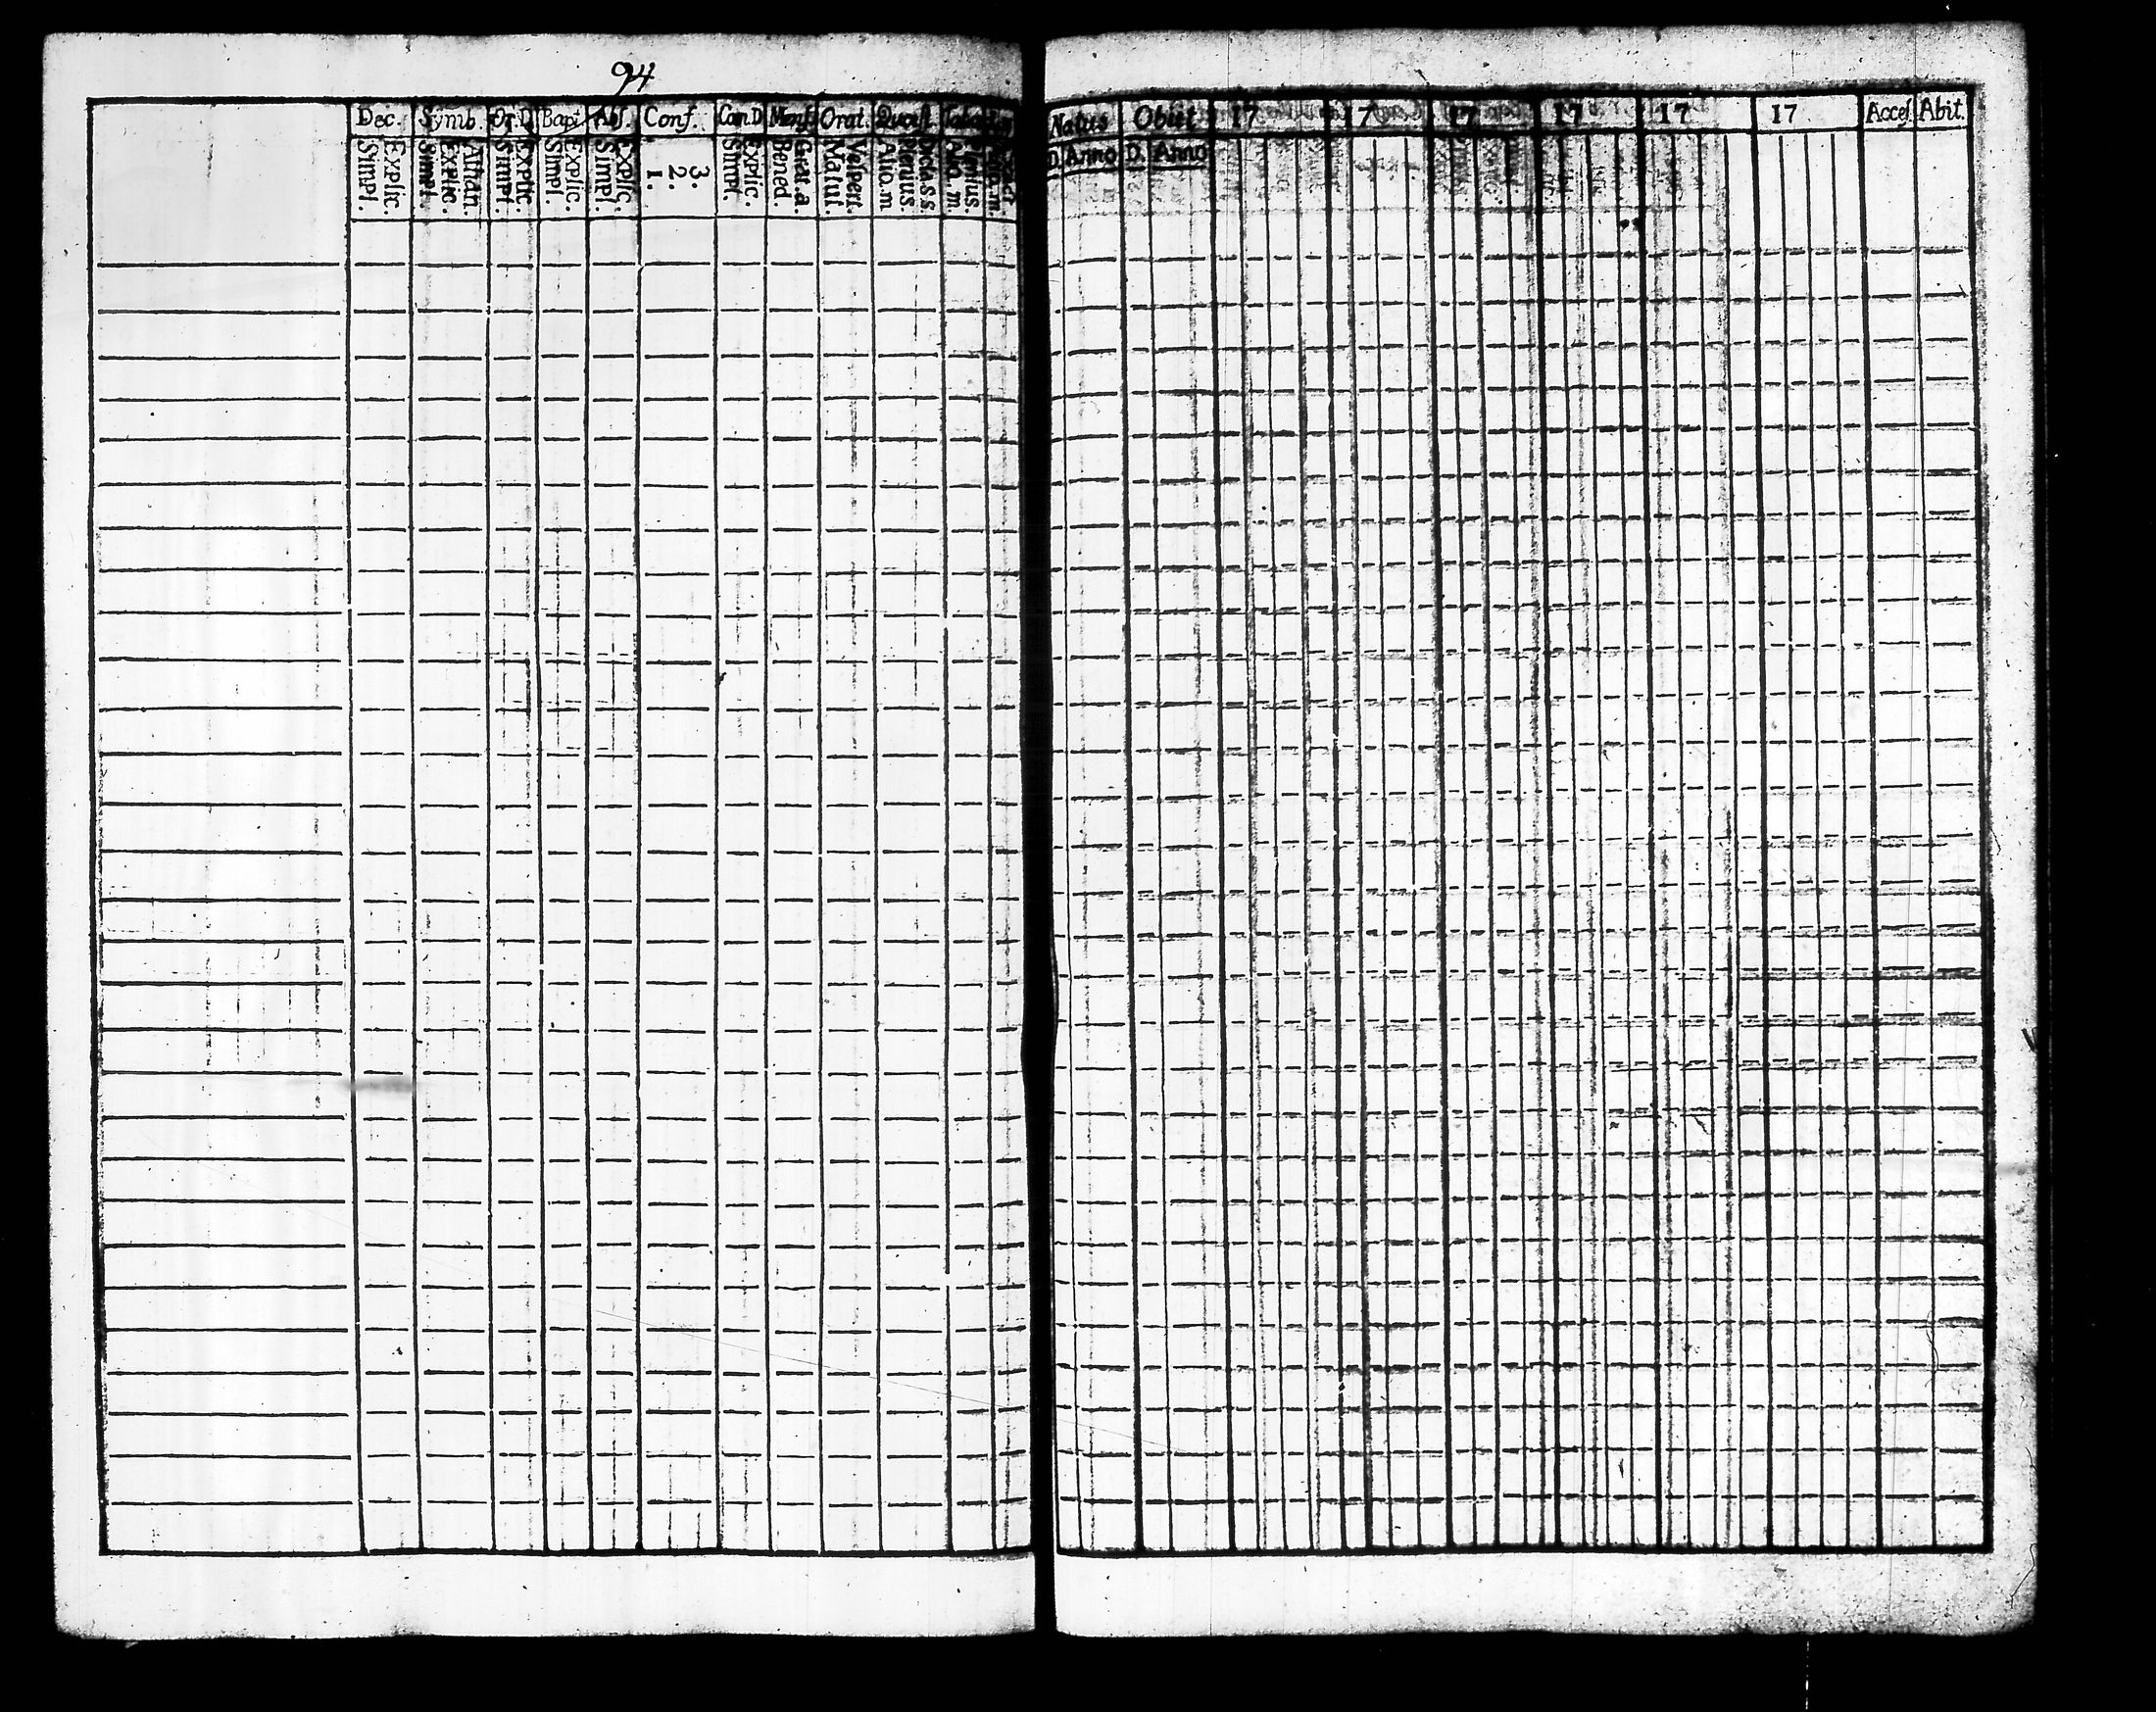 94
Dec. Symb. Or. D Bapt. Abs. Conf. Cœn. D Mens. Orat. Quæst.
Simpl. Explic. Simpl. Explic. Athan. Simpl. Explic. Simpl. Explic. Simpl. Explic. 1. 2. 3. Simpl. Explic. Bened. Grat. a. Matut. Vespert. Aliq. m. Plenius. Dicta S. S. Aliq. m. Plenius.
Natus Obiit 17 17 17 17 17 17 Acces. Abit.
D. Anno D. Anno